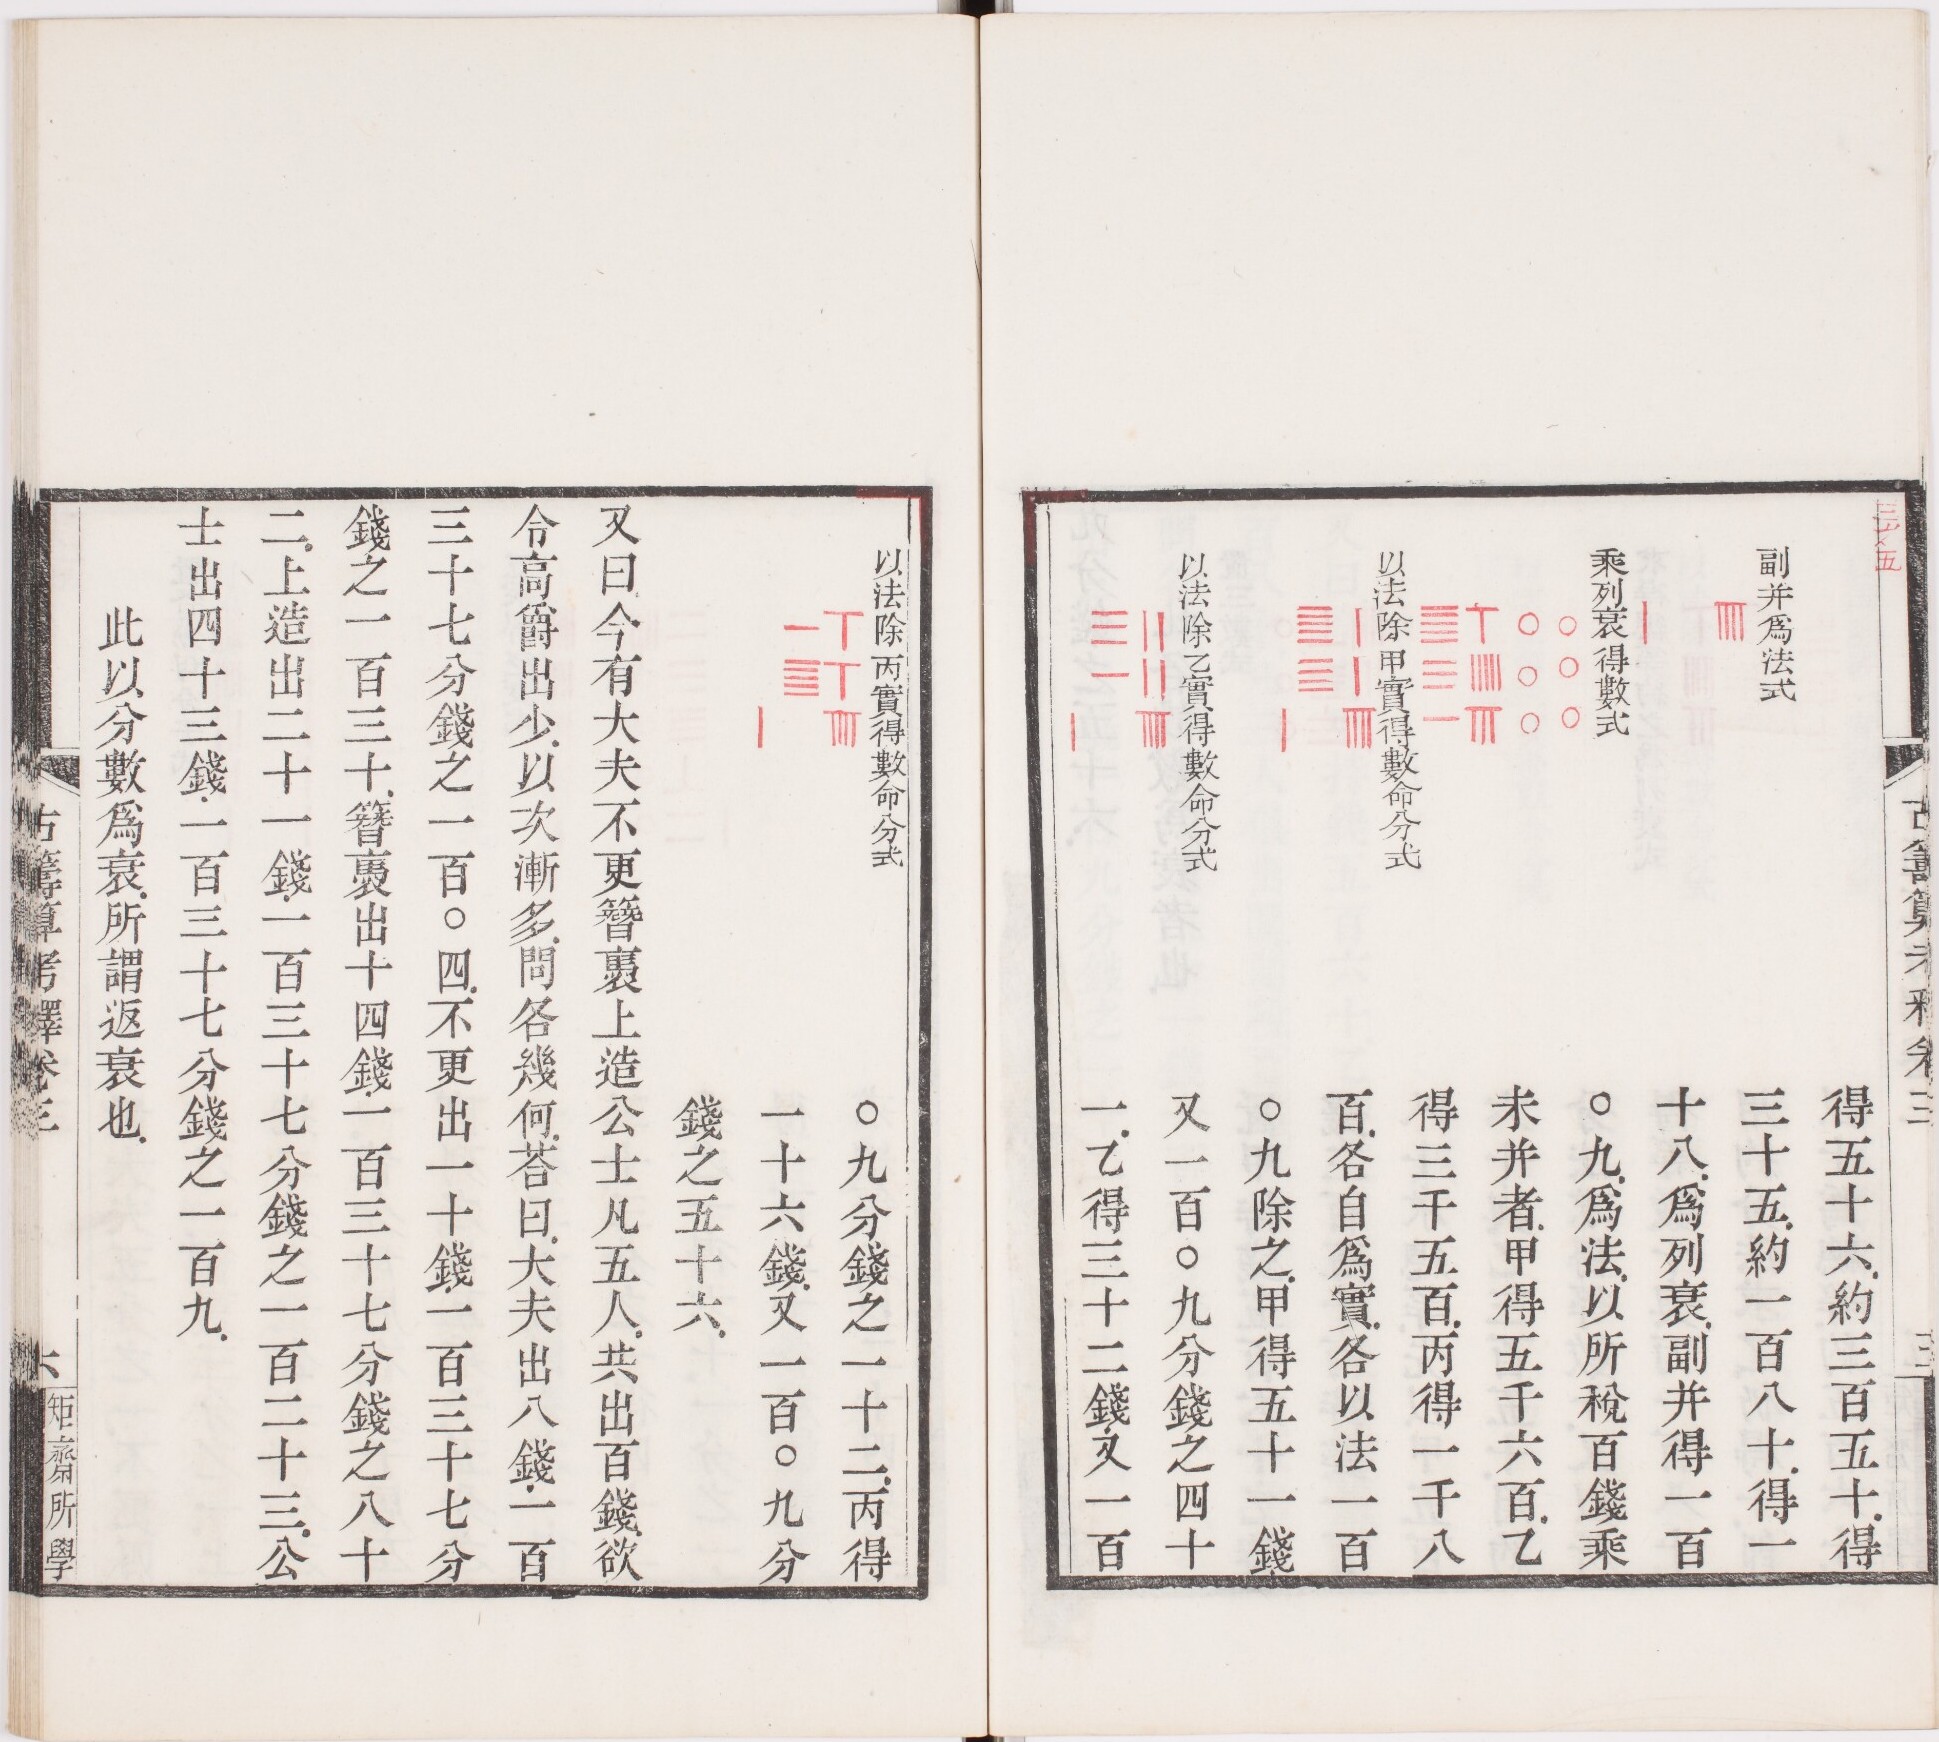 副并爲法式
得五十六約三百五十得一
三十五約一百八十得一
十八爲列衰副并得一百
乘列衰得數式
〇九爲法以所稅百錢乘
未并者甲得五千六百乙
得三千五百丙得一千八
以法除甲實得數命分式
百各自爲實各以法一百
〇九除之甲得五十一錢
以法除乙實得數命分式
又一百〇九分錢之四十
一乙得三十二錢又一百
以法除丙實得數命分式
〇九分錢之一十二丙得
一十六錢又一百〇九分
錢之五十六
又曰今有大夫不更簪褭上造公士凡五人共出百錢欲
令高爵出少以次漸多問各幾何荅曰大夫出八錢一百
三十七分錢之一百〇四不更出一十錢一百三十七分
錢之一百三十簪褭出十四錢一百三十七分錢之八十
二上造出二十一錢一百三十七分錢之一百二十三公
士出四十三錢一百三十七分錢之一百九
此以分數爲衰所謂返衰也
古籌算考釋卷三
六
矩齋所學